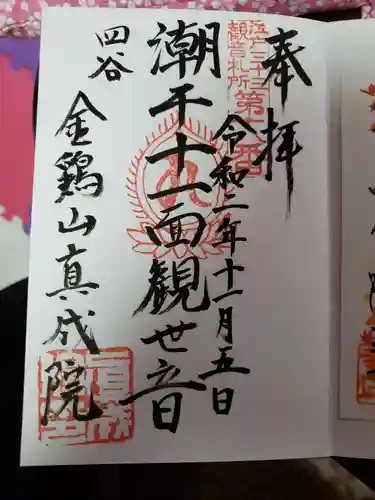 奉拝
令和二年十一月五日
潮干十一面観世音
四谷
金鶏山真成院
江戸三十三
観音札所